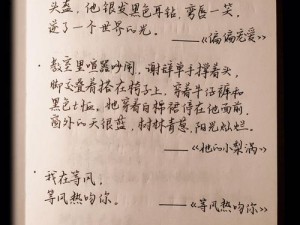 头盔，他银发黑色耳钉，弯唇一笑，
逆了一个世界的光。
——《偏偏宠爱》
·教室里喧嚣吵闹，谢辞单手撑着头，
脚交叠着搭在椅子上，穿着牛仔裤和
黑色t恤。她穿着白棉裙停在他面前，
窗外的天很蓝，树林青葱，阳光灿烂。
——《她的小梨涡》
·我在等风，
等风热吻你。
——《等风热吻你》